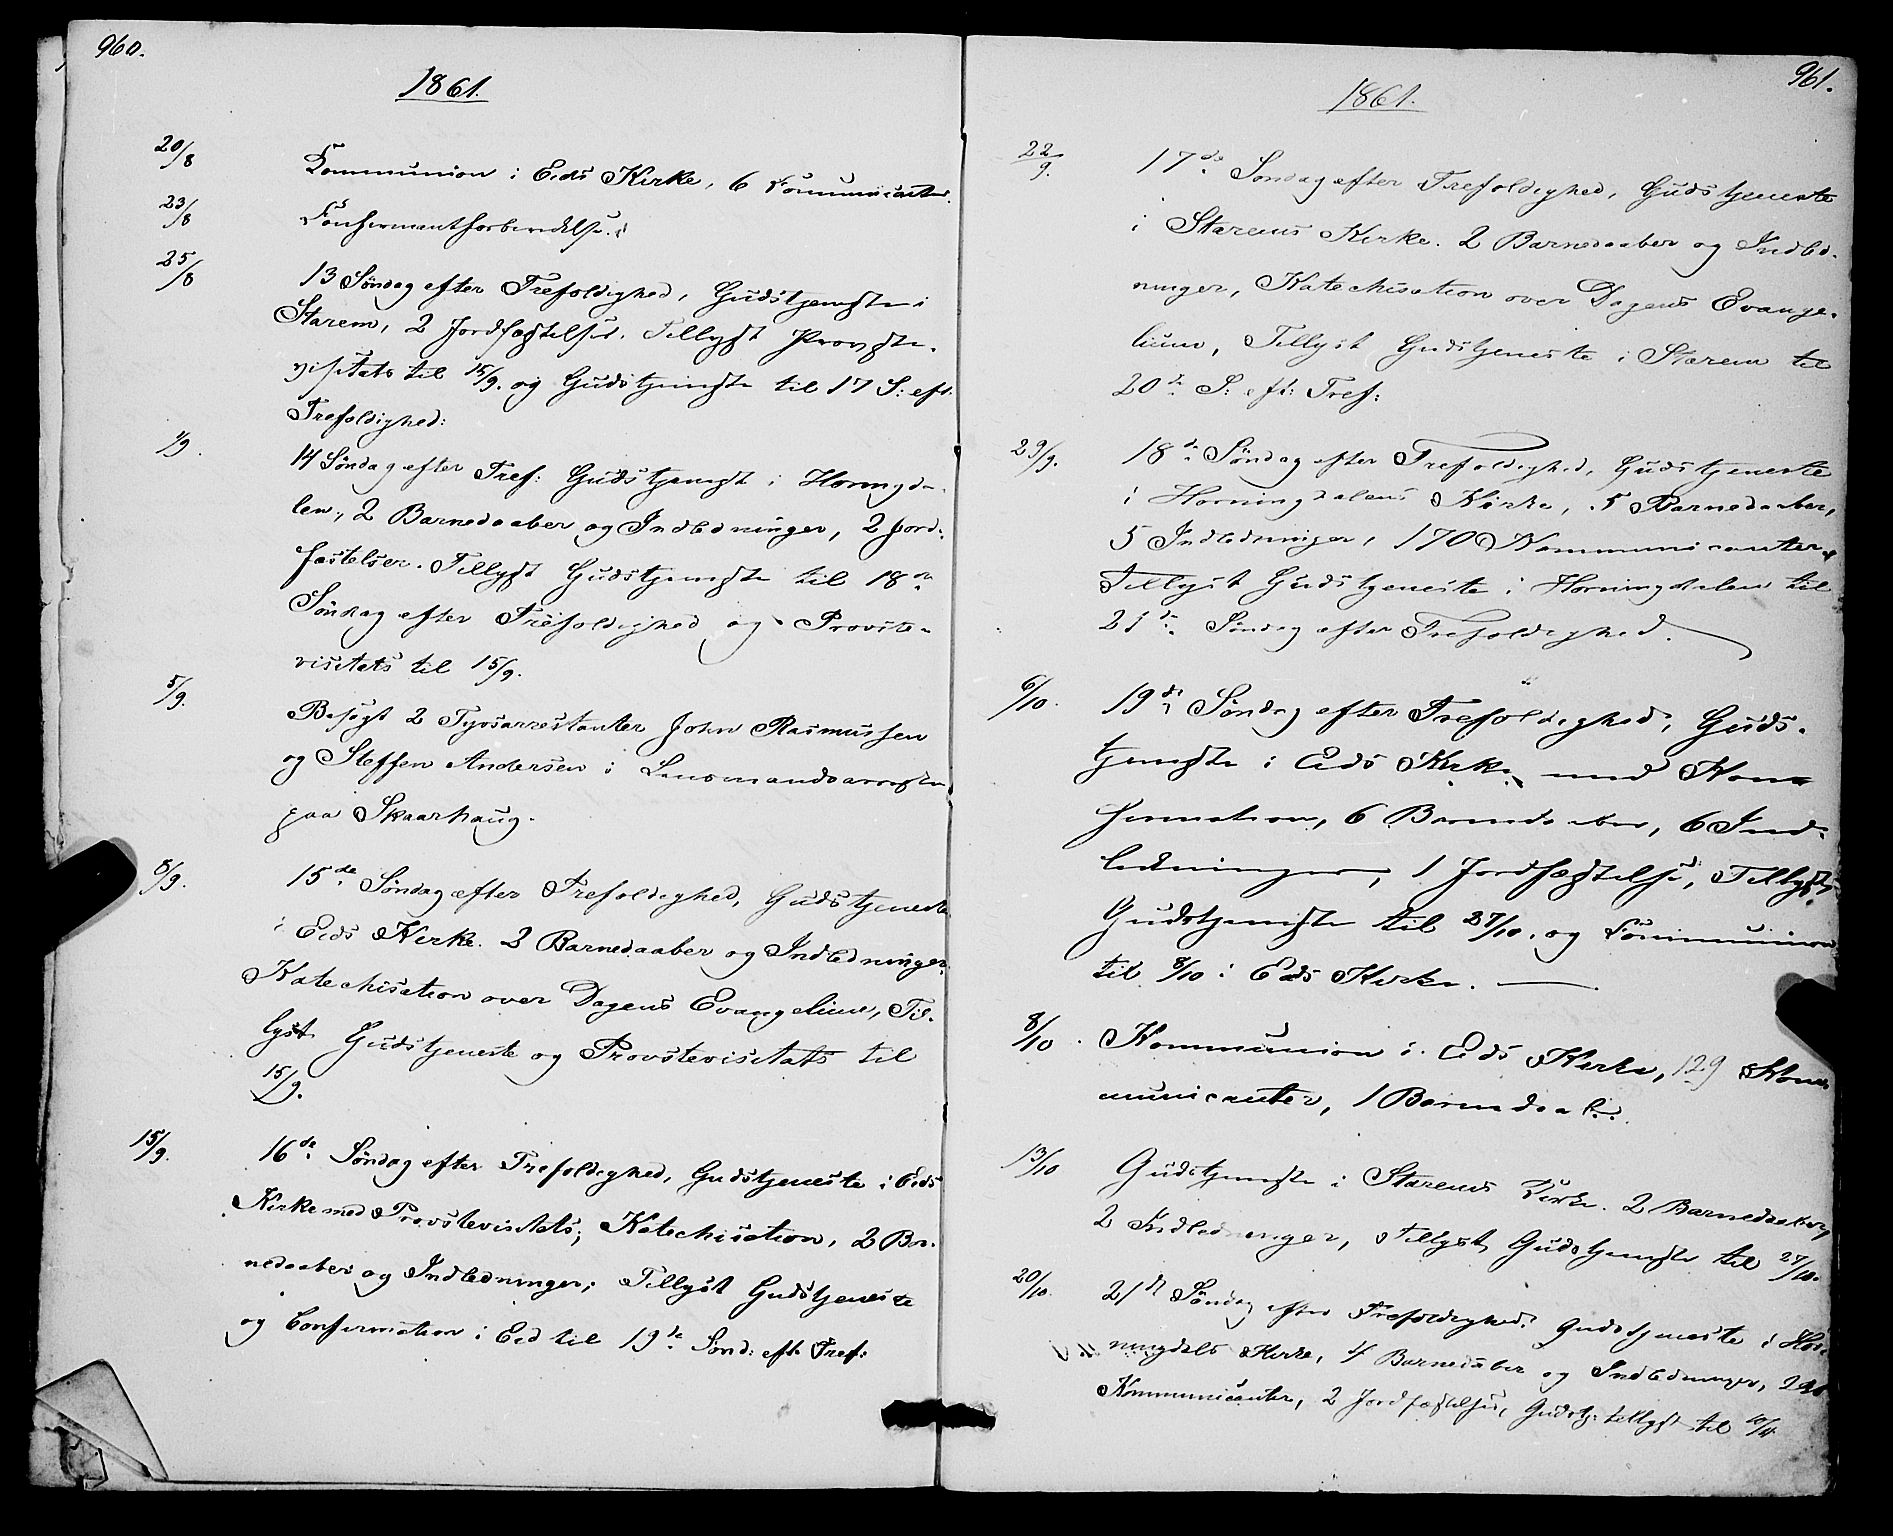 960.
1861.
20/8 Kommunion i Eids Kirke, 6 Communicanter.
23/8 Confirmantforberedelse.
25/8 13 Søndag efter Trefoldighed, Gudstjeneste i
Starem, 2 Jordfæstelser. Tillyst Provste-
visitats til 15/9. og Gudstjeneste til 17 S: eft.
Trefoldighed:
1/9. 14 Søndag efter Tref: Gudstjenest i Horningda-
len, 2 Barnedaaber og Indledninger, 2 Jord-
fæstelser. Tillyst Gudstjeneste til 18de
Søndag efter Trefoldighed og Provste-
visitats til 15/9.
5/9. Besøgt 2 Tyvsarrestanter John Rasmussen
og Steffen Andersen i Lensmandsarresten
paa Skaarhaug.
8/9. 15de Søndag efter Trefoldighed, Gudstjeneste
i Eids Kirke. 2 Barnedaaber og Indledninger
Katechisation over Dagens Evangelium, Til-
lyst Gudstjeneste og Provstevisitats til
15/9.
15/9. 16de Søndag efter Trefoldighed, Gudstjeneste i Eids
Kirke med Provstevisitats; Katechisation, 2 Bar-
nedaaber og Indledninger; Tillyst Gudstjeneste
og Confirmation i Eid til 19de Sønd: eft. Tref:
961.
1861.
22/9. 17de Søndag efter Trefoldighed, Gudstjeneste
i Starems Kirke. 2 Barnedaaber og Indled-
ninger, Katechisation over Dagens Evange-
lium, Tillyst Gudstjeneste i Starem til
20de S: eft: Tref:
29/9. 18de Søndag efter Trefoldighed, Gudstjeneste
i Horningdalens Kirke, 5 Barnedaaber,
5 Indledninger, 170 Kommunicanter
Tillyst Gudstjeneste i Horningdalen til
21de Søndag efter Trefoldighed.
6/10. 19de Søndag efter Trefoldighed, Guds-
tjeneste i Eids Kirke med Kon-
firmation, 6 Barnedaaber, 6 Ind-
ledninger, 1 Jordfæstelse, Tillyst
Gudstjeneste til 27/10. og Communion
til 8/10 i Eids Kirke.
8/10. Kommunion i Eids Kirke, 129 Kom-
municanter, 1 Barnedaab.
13/10 Gudstjeneste i Starems Kirke. 2 Barnedaaber,
2 Indledninger, Tillyst Gudstjeneste til 27/10.
20/10. 21de Søndag efter Trefoldighed. Gudstjeneste i Hor-
ningdals Kirke, 4 Barnedaaber og Indledninger,
Kommunicanter, 2 Jordfæstelser, Gudstj: tillyst til 10/11